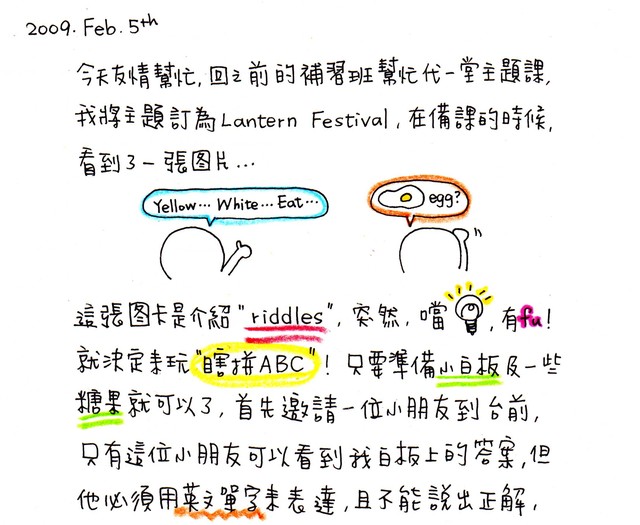 2009. Feb. 5th
今天友情幫忙,回之前的補習班幫忙代一堂主題課,
我將主題訂為Lantern Festival,在備課的時候,
看到了一張图片...
Yellow... White... Eat...
egg?
這張图卡是介紹"riddles",突然,噹,有fu!
就決定來玩"瞎拼ABC"!只要準備小白板及一些
糖果就可以了,首先邀請一位小朋友到台前,
只有這位小朋友可以看到我白板上的答案,但
他必須用英文單字來表達,且不能説出正解,